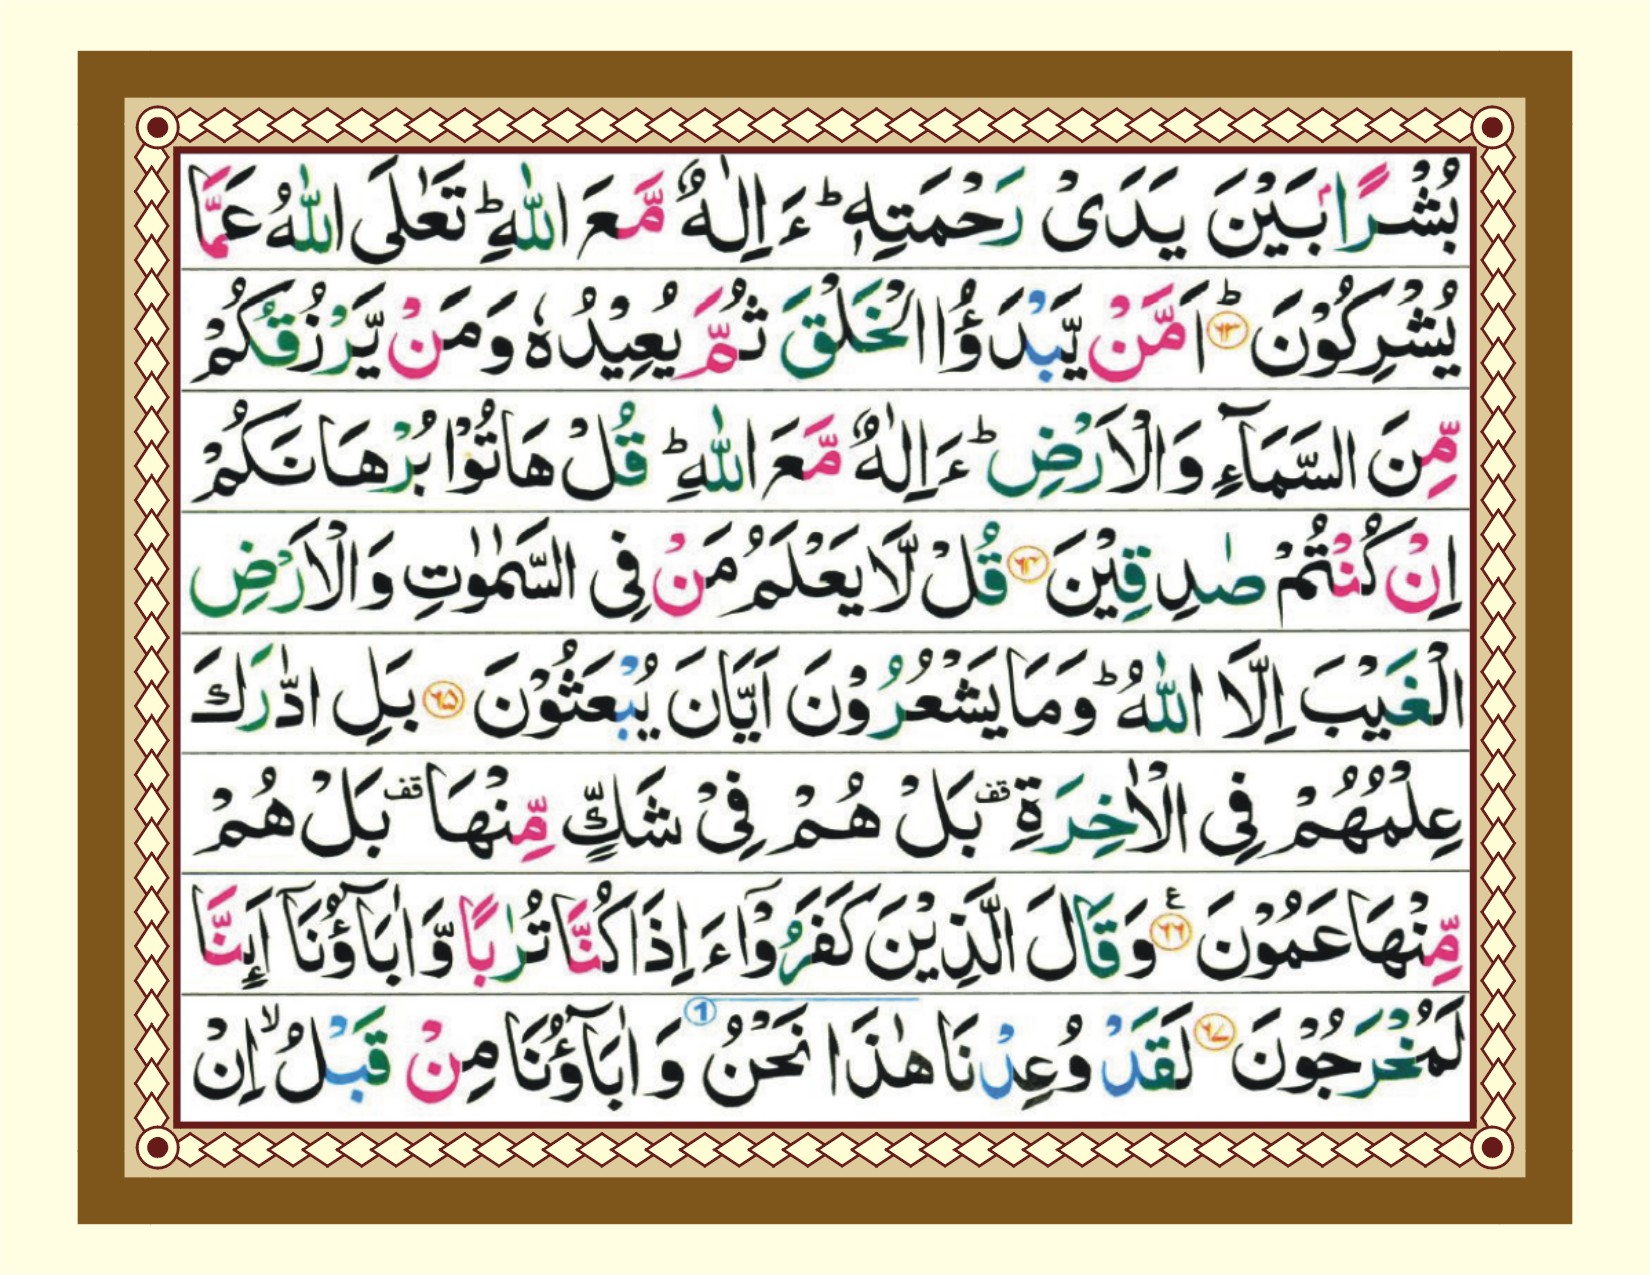 بُشْرًاۢ بَيْنَ يَدَىْ رَحْمَتِهٖ ؕ ءَاِلٰهٌ مَّعَ اللّٰهِ ؕ تَعٰلَى اللّٰهُ عَمَّا
يُشْرِكُوْنَ ؕ ﴿۶۳﴾ اَمَّنْ يَّبْدَؤُا الْخَلْقَ ثُمَّ يُعِيْدُهٗ وَمَنْ يَّرْزُقُكُمْ
مِّنَ السَّمَآءِ وَالْاَرْضِ ؕ ءَاِلٰهٌ مَّعَ اللّٰهِ ؕ قُلْ هَاتُوْا بُرْهَانَكُمْ
اِنْ كُنْتُمْ صٰدِقِيْنَ ﴿۶۴﴾ قُلْ لَّا يَعْلَمُ مَنْ فِى السَّمٰوٰتِ وَالْاَرْضِ
الْغَيْبَ اِلَّا اللّٰهُ ؕ وَمَا يَشْعُرُوْنَ اَيَّانَ يُبْعَثُوْنَ ﴿۶۵﴾ بَلِ ادّٰرَكَ
عِلْمُهُمْ فِى الْاٰخِرَةِ قف بَلْ هُمْ فِىْ شَكٍّ مِّنْهَا قف بَلْ هُمْ
مِّنْهَا عَمُوْنَ ﴿۶۶﴾ ع وَقَالَ الَّذِيْنَ كَفَرُوْٓا ءَاِذَا كُنَّا تُرٰبًا وَّاٰبَآؤُنَآ اَئِنَّا
لَمُخْرَجُوْنَ ﴿۶۷﴾ لَقَدْ وُعِدْنَا هٰذَا نَحْنُ 1 وَاٰبَآؤُنَا مِنْ قَبْلُ ۙ اِنْ